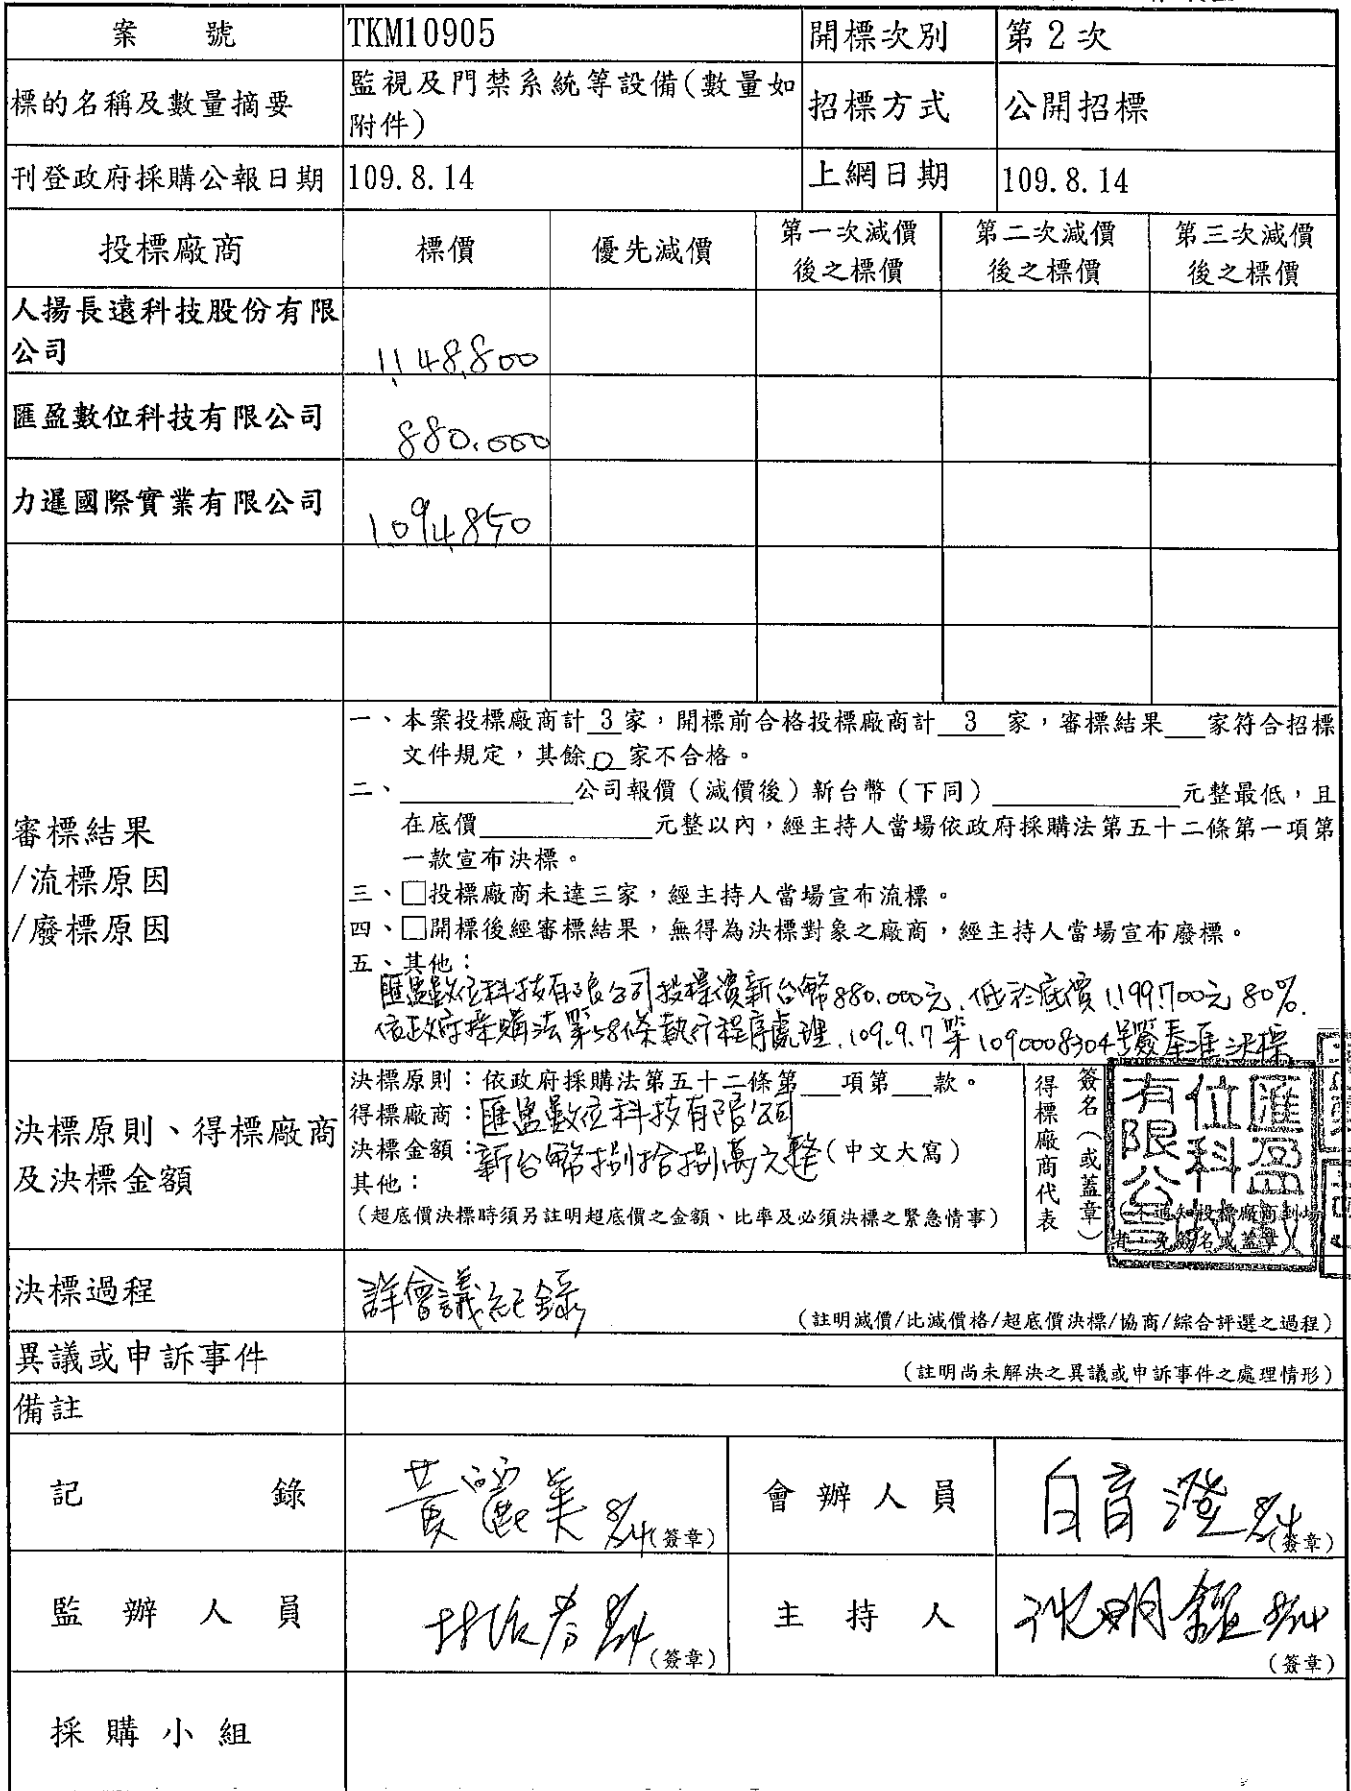 案號 TKM10905 開標次別 第2次
標的名稱及數量摘要 監視及門禁系統等設備(數量如
附件) 招標方式 公開招標
刊登政府採購公報日期 109.8.14 上網日期 109.8.14
投標廠商 標價 優先減價 第一次減價
後之標價 第二次減價
後之標價 第三次減價
後之標價
人揚長遠科技股份有限
公司 1,148,800
匯盈數位科技有限公司 880,000
力暹國際實業有限公司 1,094,850
審標結果
/流標原因
/廢標原因
一、本案投標廠商計 3 家，開標前合格投標廠商計 3 家，審標結果___家符合招標
文件規定，其餘 0 家不合格。
二、__________公司報價（減價後）新台幣（下同）__________元整最低，且
在底價__________元整以內，經主持人當場依政府採購法第五十二條第一項第
一款宣布決標。
三、□投標廠商未達三家，經主持人當場宣布流標。
四、□開標後經審標結果，無得為決標對象之廠商，經主持人當場宣布廢標。
五、其他：
匯盈數位科技有限公司投標價新台幣880,000元，低於底價1,199,700元80%，
依政府採購法第58條執行程序處理，109.9.7第1090008304號簽奉准決標
決標原則、得標廠商
及決標金額
決標原則：依政府採購法第五十二條第___項第___款。
得標廠商：匯盈數位科技有限公司
決標金額：新台幣捌拾捌萬元整（中文大寫）
其他：
（超底價決標時須另註明超底價之金額、比率及必須決標之緊急情事）
得標廠商代表
簽名（或蓋章）
匯盈數
位科技
有限公司
決標過程 詳會議紀錄
（註明減價/比減價格/超底價決標/協商/綜合評選之過程）
異議或申訴事件 （註明尚未解決之異議或申訴事件之處理情形）
備註
記錄 黃麗美 8/24 (簽章) 會辦人員 白育澄 8/24 (簽章)
監辦人員 8/24 (簽章) 主持人 沈明鑑 8/24 (簽章)
採購小組